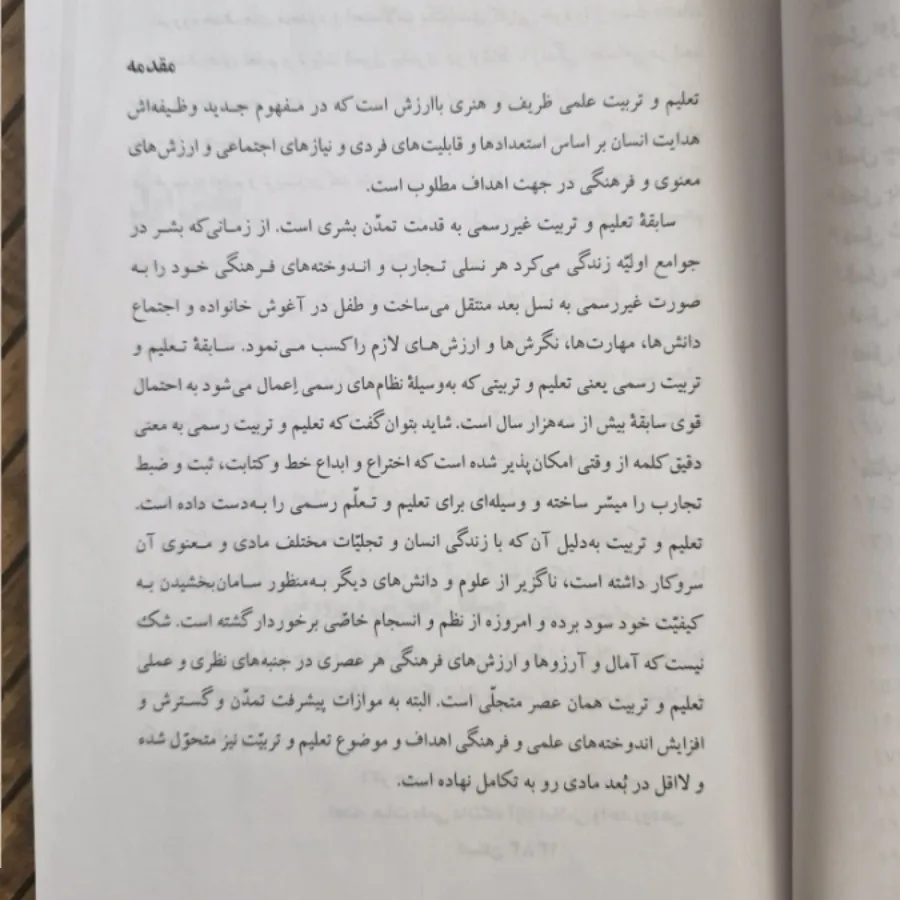 مقدمه
تعلیم و تربیت علمی ظریف و هنری باارزش است که در مفهوم جدید وظیفه‌اش
هدایت انسان بر اساس استعدادها و قابلیت‌های فردی و نیازهای اجتماعی و ارزش‌های
معنوی و فرهنگی در جهت اهداف مطلوب است.
سابقهٔ تعلیم و تربیت غیررسمی به قدمت تمدّن بشری است. از زمانی‌که بشر در
جوامع اولیّه زندگی می‌کرد هر نسلی تجارب و اندوخته‌های فرهنگی خود را به
صورت غیررسمی به نسل بعد منتقل می‌ساخت و طفل در آغوش خانواده و اجتماع
دانش‌ها، مهارت‌ها، نگرش‌ها و ارزش‌های لازم را کسب می‌نمود. سابقهٔ تعلیم و
تربیت رسمی یعنی تعلیم و تربیتی که به‌وسیلهٔ نظام‌های رسمی اِعمال می‌شود به احتمال
قوی سابقهٔ بیش از سه‌هزار سال است. شاید بتوان گفت که تعلیم و تربیت رسمی به معنی
دقیق کلمه از وقتی امکان‌پذیر شده است که اختراع و ابداع خط و کتابت، ثبت و ضبط
تجارب را میسّر ساخته و وسیله‌ای برای تعلیم و تعلّم رسمی را به‌دست داده است.
تعلیم و تربیت به‌دلیل آن که با زندگی انسان و تجلیّات مختلف مادی و معنوی آن
سروکار داشته است، ناگزیر از علوم و دانش‌های دیگر به‌منظور سامان‌بخشیدن به
کیفیّت خود سود برده و امروزه از نظم و انسجام خاصّی برخوردار گشته است. شک
نیست که آمال و آرزوها و ارزش‌های فرهنگی هر عصری در جنبه‌های نظری و عملی
تعلیم و تربیت همان عصر متجلّی است. البته به موازات پیشرفت تمدّن و گسترش و
افزایش اندوخته‌های علمی و فرهنگی اهداف و موضوع تعلیم و تربیّت نیز متحوّل شده
و لااقل در بُعد مادی رو به تکامل نهاده است.